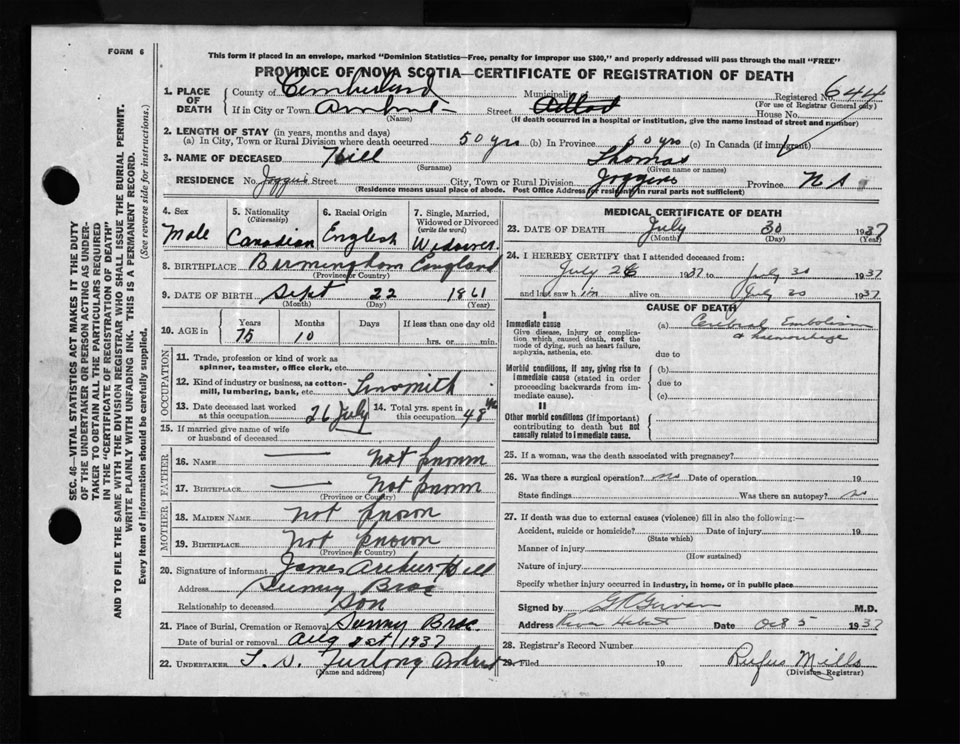 FORM 6
This form if placed in an envelope, marked "Dominion Statistics—Free, penalty for improper use $300," and properly addressed will pass through the mail "FREE"
PROVINCE OF NOVA SCOTIA—CERTIFICATE OF REGISTRATION OF DEATH
SEC. 46—VITAL STATISTICS ACT MAKES IT THE DUTY
OF THE UNDERTAKER OR PERSON ACTING AS UNDER-
TAKER TO OBTAIN ALL THE PARTICULARS REQUIRED
IN THE "CERTIFICATE OF REGISTRATION OF DEATH"
AND TO FILE THE SAME WITH THE DIVISION REGISTRAR WHO SHALL ISSUE THE BURIAL PERMIT.
WRITE PLAINLY WITH UNFADING INK. THIS IS A PERMANENT RECORD.
Every item of information should be carefully supplied. (See reverse side for instructions.)
1. PLACE OF DEATH County of Cumberland Municipality Registered No. 644
(For use of Registrar General only)
If in City or Town Amherst Street House No.
(Name) (If death occurred in a hospital or institution, give the name instead of street and number)
2. LENGTH OF STAY (in years, months and days)
(a) In City, Town or Rural Division where death occurred 50 yrs (b) In Province 50 yrs (c) In Canada (if immigrant)
3. NAME OF DECEASED Hill Thomas
(Surname) (Given name or names)
RESIDENCE No. Joggins Street City, Town or Rural Division Joggins Province N S
(Residence means usual place of abode. Post Office Address for residents in rural parts not sufficient)
4. Sex Male
5. Nationality (Citizenship) Canadian
6. Racial Origin English
7. Single, Married, Widowed or Divorced (write the word) Widower
8. BIRTHPLACE Birmingham England
(Province or Country)
9. DATE OF BIRTH Sept 22 1861
(Month) (Day) (Year)
10. AGE in Years Months Days If less than one day old
75 10 hrs. or min.
OCCUPATION
11. Trade, profession or kind of work as spinner, teamster, office clerk, etc.
12. Kind of industry or business, as cotton-mill, lumbering, bank, etc. Tinsmith
13. Date deceased last worked at this occupation 26 July
14. Total yrs. spent in this occupation 48
15. If married give name of wife or husband of deceased
FATHER
16. NAME — Not known
17. BIRTHPLACE — Not known
(Province or Country)
MOTHER
18. MAIDEN NAME Not known
19. BIRTHPLACE Not known
(Province or Country)
20. Signature of informant James Arthur Hill
Address Sunny Brae
Relationship to deceased Son
21. Place of Burial, Cremation or Removal Sunny Brae
Date of burial or removal Aug 1937
22. UNDERTAKER Furlong Amherst
(Name and address)
MEDICAL CERTIFICATE OF DEATH
23. DATE OF DEATH July 30 1937
(Month) (Day) (Year)
24. I HEREBY CERTIFY that I attended deceased from:
July 26 1937 to July 30 1937
and last saw him alive on July 30 1937
CAUSE OF DEATH
I
Immediate cause
Give disease, injury or complication which caused death, not the mode of dying, such as heart failure, asphyxia, asthenia, etc.
(a) Cerebral Embolism
& haemorrhage
due to
Morbid conditions, if any, giving rise to immediate cause (stated in order proceeding backwards from immediate cause).
(b)
due to
(c)
II
Other morbid conditions (if important) contributing to death but not causally related to immediate cause.
25. If a woman, was the death associated with pregnancy?
26. Was there a surgical operation? no Date of operation 19
State findings Was there an autopsy? no
27. If death was due to external causes (violence) fill in also the following:—
Accident, suicide or homicide? Date of injury 19
(State which)
Manner of injury
(How sustained)
Nature of injury
Specify whether injury occurred in industry, in home, or in public place
Signed by M.D.
Address River Hebert Date Oct 5 1937
28. Registrar's Record Number
29. Filed 19 Rufus Mills
(Division Registrar)